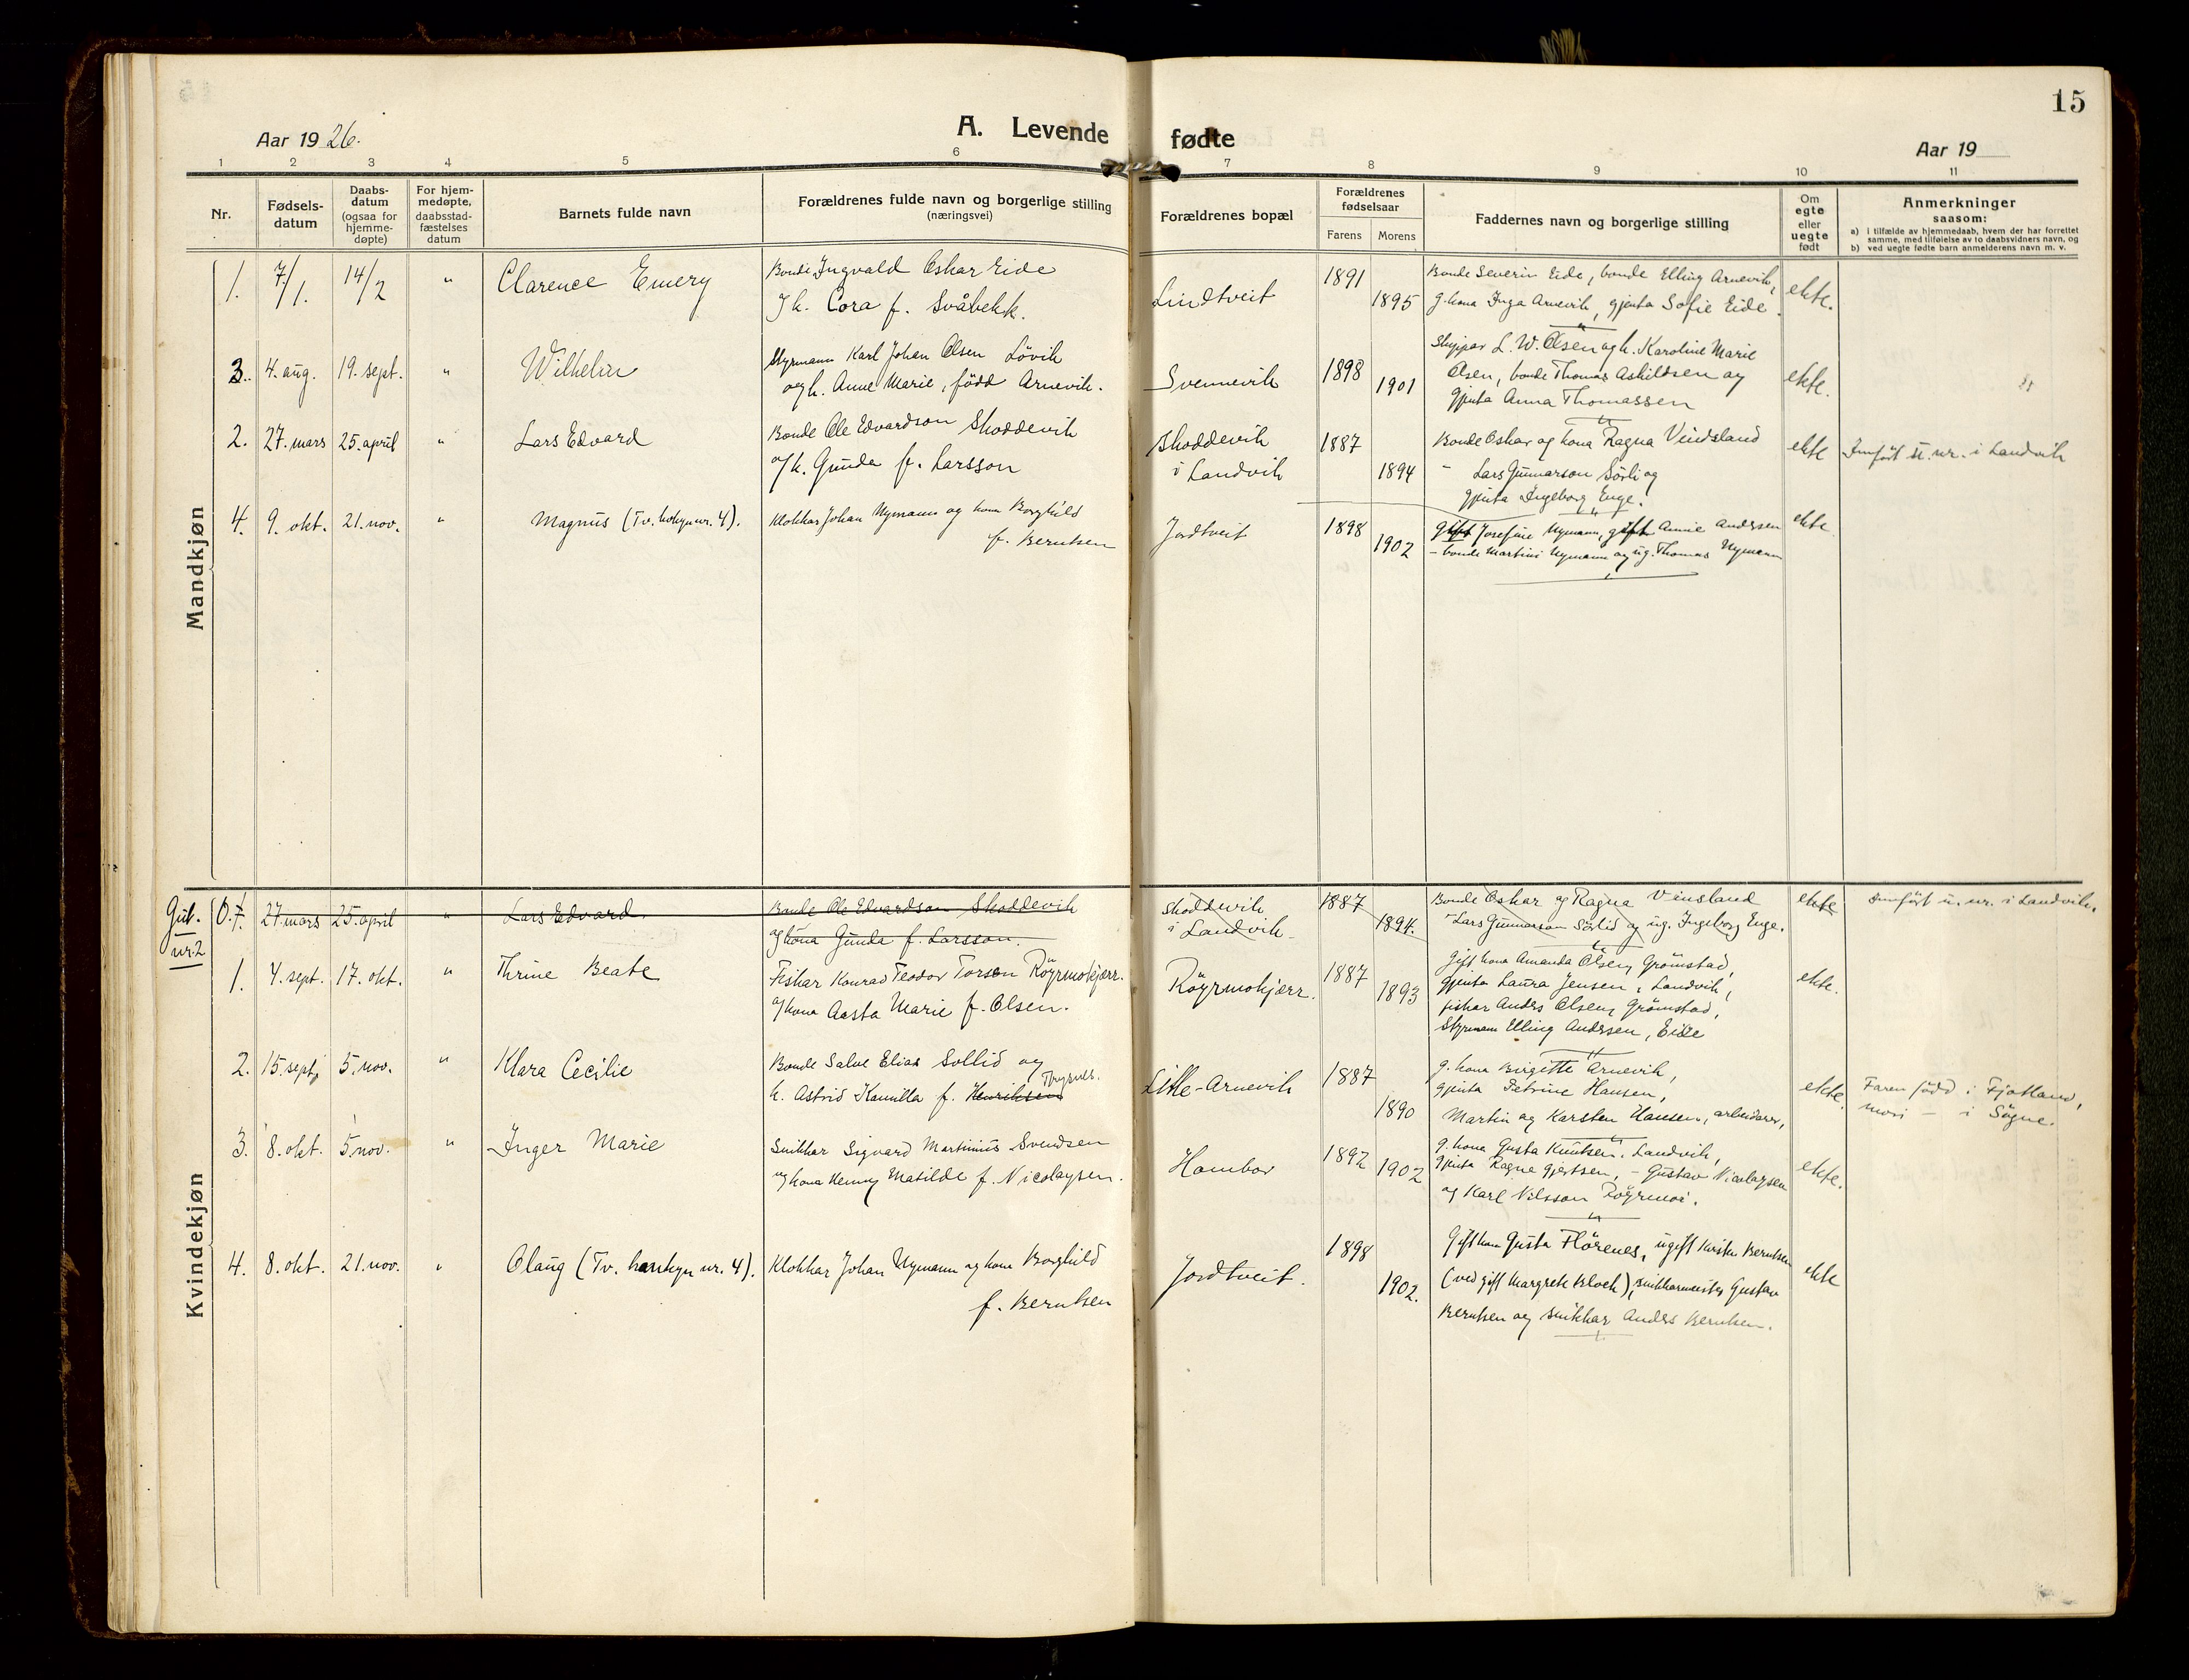 15
A. Levende fødte
Aar 1926.
Aar 19
1 2 3 4 5 6 7 8 9 10 11
Nr.
Fødsels-
datum
Daabs-
datum
(ogsaa for
hjemme-
døpte)
For hjem-
medøpte,
daabsstad-
fæstelses
datum
Barnets fulde navn
Forældrenes fulde navn og borgerlige stilling
(næringsvei)
Forældrenes bopæl
Forældrenes
fødselsaar
Farens Morens
Faddernes navn og borgerlige stilling
Om
egte
eller
uegte
født
Anmerkninger
saasom:
a) i tilfælde av hjemmedaab, hvem der har forrettet
samme, med tilføielse av to daabsvidners navn, og
b) ved uegte fødte barn anmelderens navn m. v.
Mandkjøn
1. 7/1. 14/2 " Clarence Emery
Bonde Ingvald Oskar Eide
og k. Cora f. Svåbekk.
Lindtveit
1891
1895
Bonde Severin Eide, bonde Elling Arnevik,
g. kona Inga Arnevik, gjenta Sofie Eide.
ekte.
3. 4. aug. 19. sept. " Wilhelm
Styrmann Karl Johan Olsen Lövik
og k. Anne Marie, född Arnevik.
Svennevik
1898
1901
Skippar L. W. Olsen og k. Karoline Marie
Olsen, bonde Thomas Askildsen og
gjenta Anna Thomassen
ekte.
2. 27. mars 25. april " Lars Edvard
Bonde Ole Edvardson Skoddevik
og k. Gunda f. Larsson
Skoddevik
i Landvik
1887
1894
Bonde Oskar og kona Ragna Vindsland
" Lars Gunnarson Sörli og
gjenta Ingeborg Enge.
ekte
Innfört u. nr. i Landvik
4. 9. okt. 21. nov. " Magnus (Tv. kvkyn nr. 4).
Klokkar Johan Nymann og kona Borghild
f. Berntsen
Jordtveit
1898
1902
gift Josefine Nymann, gift Annie Andersen
- bonde Martini Nymann og ug. Thomas Nymann
ekte
Kvindekjøn
Gut.
nr. 2
0.7. 27. mars 25. april " Lars Edvard
Bonde Ole Edvardson Skoddevik
og kona Gunda f. Larsson.
Skoddevik
i Landvik
1887
1894.
Bonde Oskar og Ragna Vinsland
" Lars Gunnarson Sörlid og ug. Ingeborg Enge.
ekte
Innfört u. nr. i Landvik.
1. 4. sept. 17. okt. " Thrine Beate
Fiskar Konrad Teodor Torsen Röyrmokjærr.
og kona Aasta Marie f. Olsen.
Röyrmokjærr.
1887
1893
Gift kona Amanda Olsen, Grömstad,
gjenta Laura Jensen, Landvik,
fiskar Anders Olsen, Grömstad,
Styrmann Elling Andersen, Eide
ekte.
2. 15. sept. 5. nov. " Klara Cecilie
Bonde Salve Elias Sollid og
k. Astrid Kamilla f. Henriksen
Litle-Arnevik
1887
1890
g. kona Birgitte Arnevik,
gjenta Petrine Hansen,
Martin og Karsten Hansen, arbeidarar,
ekte.
Faren född i Fjotland,
mori - i Sögne.
3. 8. okt. 5 nov. " Inger Marie
Snikkar Sigvard Martinius Svendsen
og kona Henny Matilde f. Nicolaysen.
Hambor
1892
1902
g. kona Gusta Knutsen, Landvik,
gjenta Ragna Gjertsen, - Gustav Nicolaysen
og Karl Nilsson Röyrmoi.
ekte.
4. 8. okt. 21. nov. " Olaug (Tv. hankyn nr. 4).
Klokkar Johan Nymann og kona Borghild
f. Berntsen
Jordtveit.
1898
1902.
Gift kona Gusta Flörenes, ugift Kirsten Berntsen
(ved gift Margrete Bloch), snikkarmeister Gustav
Berntsen og snikkar Anders Berntsen.
ekte